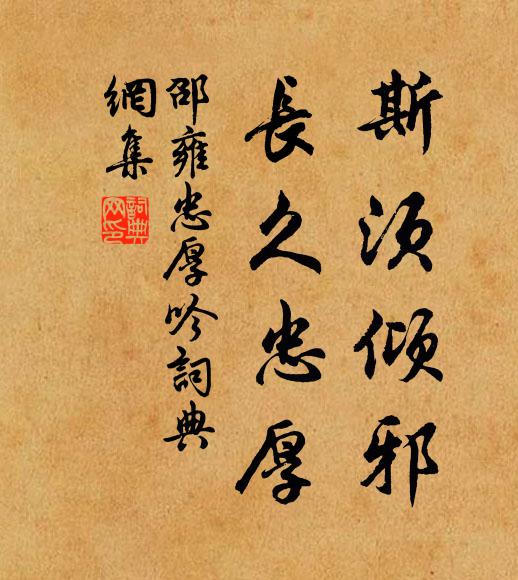 斯須傾邪
長久忠厚
邵雍忠厚吟詞典
網集
詞典
网印